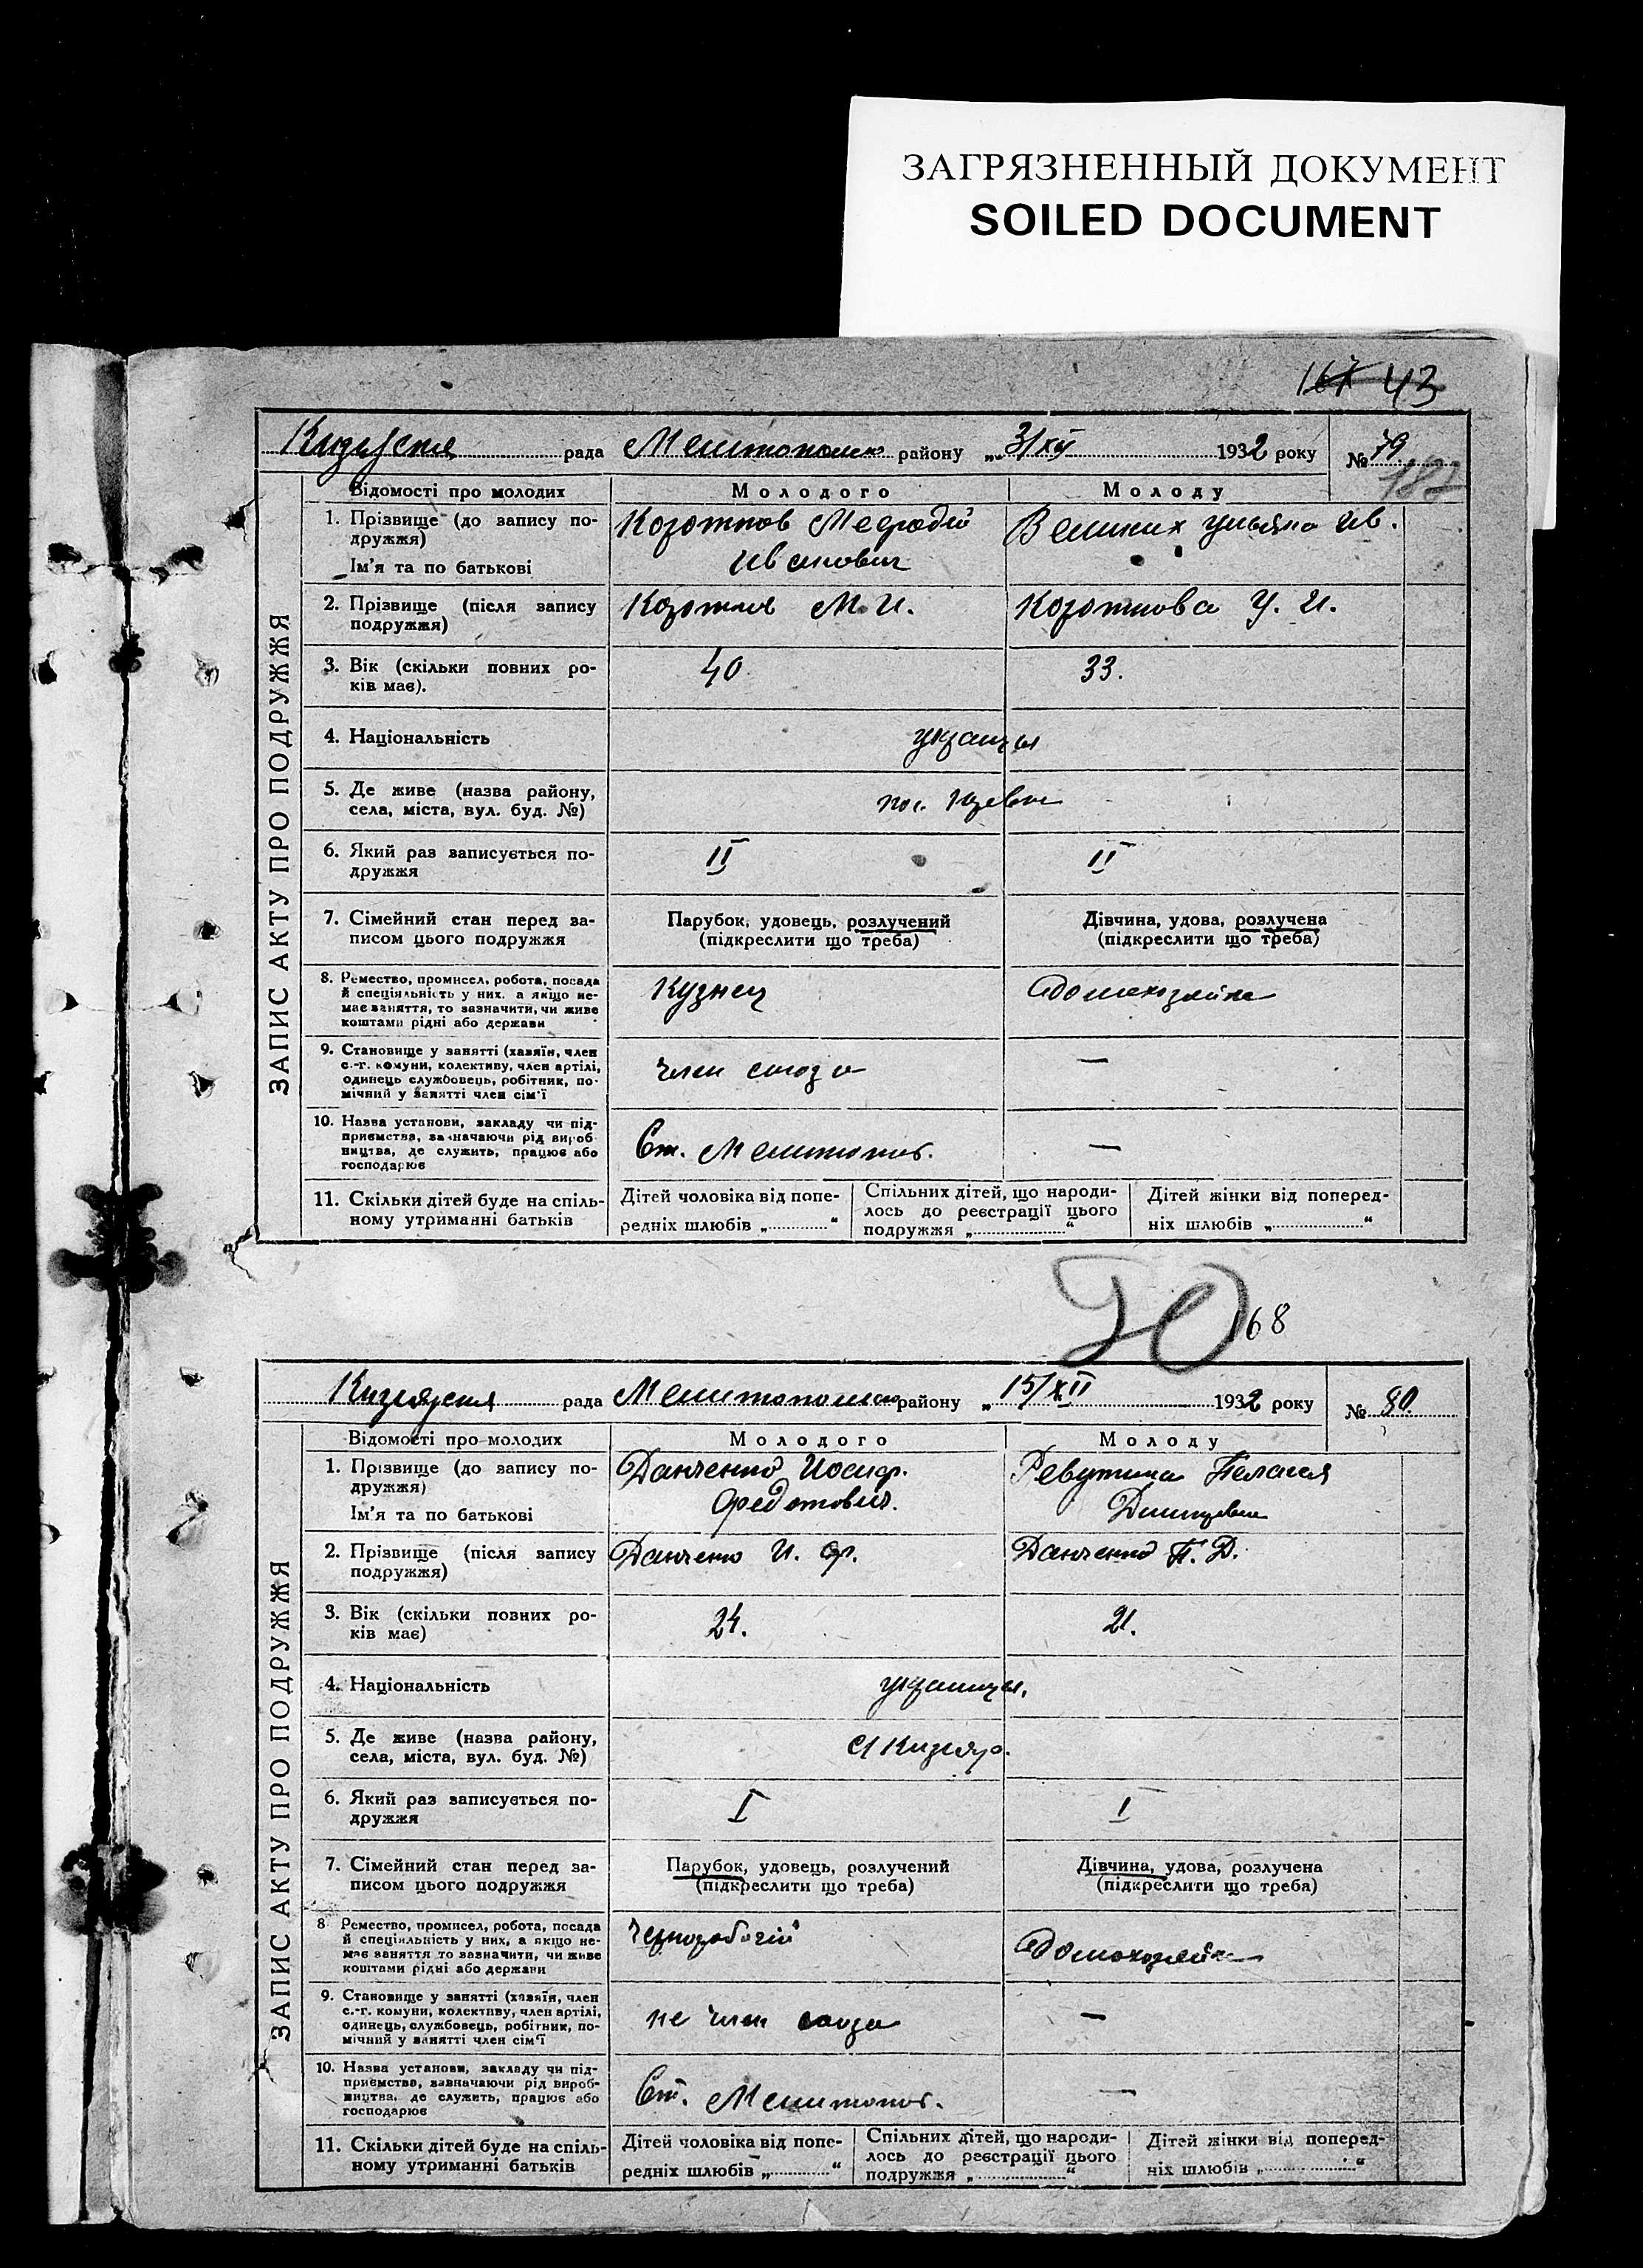 ЗАГРЯЗНЕННЫЙ ДОКУМЕНТ
SOILED DOCUMENT
167 43
рада Мелитополь району „ 31/XII 1932 року № 79
182
ЗАПИС АКТУ ПРО ПОДРУЖЖЯ
Відомості про молодих Молодого Молоду
1. Прізвище (до запису по-
дружжя)
Ім'я та по батькові
Коротков Мефодий
Иванович
Великих Ульяна Ив.
2. Прізвище (після запису
подружжя)
Коротков М. И.
Короткова У. И.
3. Вік (скільки повних ро-
ків має).
40
33.
4. Національність
украинцы
5. Де живе (назва району,
села, міста, вул. буд. №)
пос.
6. Який раз записується по-
дружжя
II
II
7. Сімейний стан перед за-
писом цього подружжя
Парубок, удовець, розлучений
(підкреслити що треба)
Дівчина, удова, розлучена
(підкреслити що треба)
8. Ремество, промисел, робота, посада
й спеціяльність у них, а якщо не-
має заняття, то зазначити, чи живе
коштами рідні або держави
Кузнец
домохозяйка
9. Становище у занятті (хазяїн, член
с.-г. комуни, колективу, член артілі,
одинець службовець, робітник, по-
мічний у занятті член сім'ї
член союза
—
10. Назва установи, закладу чи під-
приємства, зазначаючи рід вироб-
ництва, де служить, працює або
господарює
Ст. Мелитополь.
—
11. Скільки дітей буде на спіль-
ному утриманні батьків
Дітей чоловіка від попе-
редніх шлюбів „ “
Спільних дітей, що народи-
лось до реєстрації цього
подружжя „ “
Дітей жінки від поперед-
ніх шлюбів „ “
168
Кизиярская рада Мелитопольско району „ 15/XII 1932 року № 80.
ЗАПИС АКТУ ПРО ПОДРУЖЖЯ
Відомості про молодих Молодого Молоду
1. Прізвище (до запису по-
дружжя)
Ім'я та по батькові
Данченко Иосиф.
Федотович.
Ревуткина Пелагея
2. Прізвище (після запису
подружжя)
Данченко И. Ф.
Данченко П. Д.
3. Вік (скільки повних ро-
ків має)
24.
21.
4. Національність
украинцы.
5. Де живе (назва району,
села, міста, вул. буд. №)
С Кизияр.
6. Який раз записується по-
дружжя
I
I
7. Сімейний стан перед за-
писом цього подружжя
Парубок, удовець, розлучений
(підкреслити що треба)
Дівчина, удова, розлучена
(підкреслити що треба)
8 Ремество, промисел, робота, посада
й спеціяльність у них, а якщо не-
має заняття то зазначити, чи живе
коштами рідні або держави
Чернорабочий
домохозяйка
9. Становище у занятті (хазяїн, член
с.-г. комуни, колективу, член артілі,
одинець, службовець, робітник, по-
мічний у занятті член сім'ї
не член союза
—
10. Назва установи, закладу чи під-
приємства, зазначаючи рід вироб-
ництва, де служить, працює або
господарює
Ст. Мелитополь.
—
11. Скільки дітей буде на спіль-
ному утриманні батьків
Дітей чоловіка від попе-
редніх шлюбів „ “
Спільних дітей, що народи-
лось до реєстрації цього
подружжя „ “
Дітей жінки від поперед-
ніх шлюбів „ “